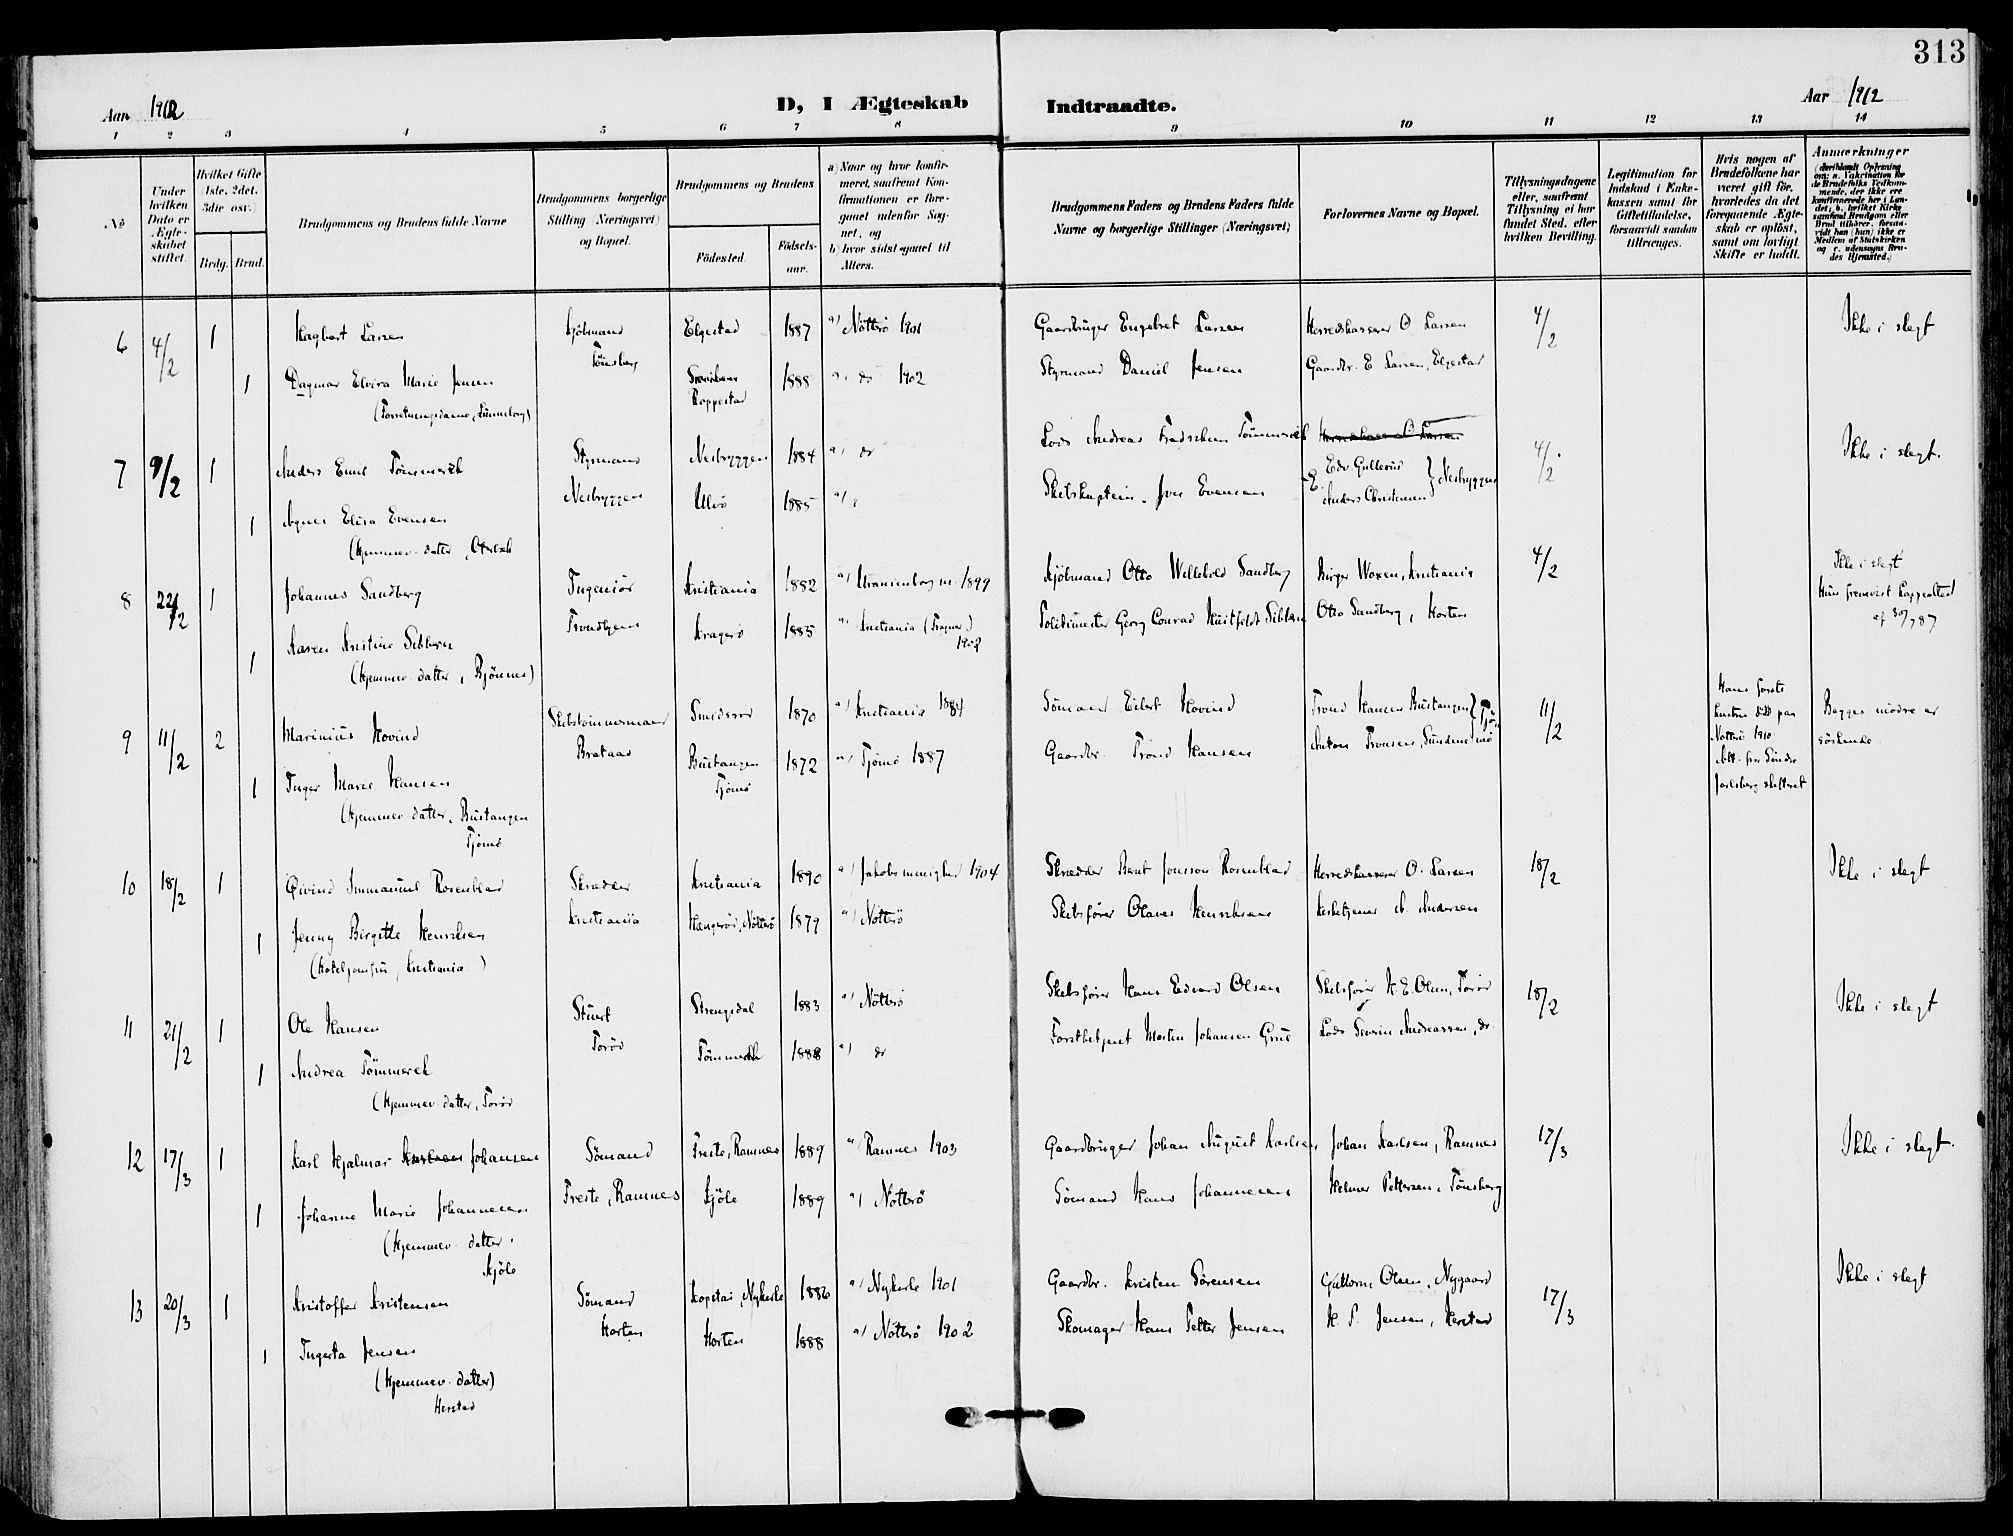 313
Aar 1912
D, I Ægteskab
Indtraadte.
Aar 1912
1 2 3 4 5 6 7 8 9 10 11 12 13 14
No
Under hvilken Dato er Ægteskabet stiftet.
Hvilket Gifte 1ste, 2det, 3die osv.)
Brdg. Brud.
Brudgommens og Brudens fulde Navne
Brudgommens borgerlige Stilling (Næringsvei) og Bopæl.
Brudgommens og Brudens
Fødested.
Fødselsaar.
a) Naar og hvor konfirmeret, saafremt Konfirmationen er foregaaet udenfor Sognet, og
b) hvor sidst gaaet til Alters.
Brudgommens Faders og Brudens Faders fulde Navne og borgerlige Stillinger (Næringsvei)
Forlovernes Navne og Bopæl.
Tillysningsdagene eller, saafremt Tillysning ei har fundet Sted, efter hvilken Bevilling.
Legitimation for Indskud i Enkekassen samt for Giftetilladelse, forsaavidt saadan tiltrænges.
Hvis nogen af Brudefolkene har været gift før, hvorledes da det foregaaende Ægteskab er opløst, samt om lovligt Skifte er holdt.
Anmærkninger
6 4/2 1 Hagbart Larsen Kjøbmand Tønsberg Elgestad 1887 a) Nøtterø 1901 Gaardbruger Engebret Larsen Herredskasserer O Larsen 4/2 Ikke i slegt
1 Dagmar Elvira Marie Jensen Roppestad 1888 a) do 1902 Styrmand Daniel Jensen Gaardbr. E Larsen, Elgestad
7 9/2 1 Anders Emil Tømmerek Styrmand Nesbryggen Nesbryggen 1884 a) do Lods Andreas Tømmerek Herredskasserer O Larsen 4/2 Ikke i slegt.
1 Agnes Elisa Evensen Ulvø 1885 a) Skibskaptein Iver Evensen Edv. Gulliksen Anders Christensen } Nesbryggen
(Hjemmev. datter
8 22/2 1 Johannes Sandberg Ingeniør Trondhjem Kristiania 1882 a) Uranienborg m. 1899 Kjøbmand Otto Willebold Sandberg Birger Woxen, Kristiania 4/2 Ikke i slegt
Hun fremvist Koppeattest af 30/7 87
1 Karen Kristine Sibbern Kragerø 1885 a) Kristiania (Fragner) 1902 Politimester Georg Conrad Huitfeldt Sibbern Otto Sandberg, Horten
(Hjemmev. datter, Bjønnes)
9 11/2 2 Marinius Hovind Skibstømmermand Brataas Smidsrød 1870 a) Kristiania 1884 Sømand Eilert Hovind Trond Hansen Bustangen } Tjømø 11/2 Hans første hustru død paa Nøtterø 1910. Att. fra Søndre Jarlsberg skifteret Begges mødre er søskende.
1 Inger Marie Hansen Bustangen Tjømø 1872 a) Tjømø 1887 Gaardbr. Trond Hansen Anton Tronsen, Sundene
(Hjemmev. datter, Bustangen
Tjømø
10 18/2 1 Øivind Immanuel Rosenblad Skrædder Kristiania Kristiania 1890 a) Jakobs menighed 1904 Skrædder Bernt Jonsson Rosenblad Herredskasserer O. Larsen 18/2 Ikke i slegt
1 Jenny Birgitte Henriksen Hængerød, Nøtterø 1879 a) Nøtterø Skibsfører Olaves Henriksen Kirketjener A. Andersen
(Hoteljomfru, Kristiania)
11 21/2 1 Ole Hansen Stuert Torød Strengsdal 1883 a) Nøtterø Skibsfører Hans Edvard Olsen Skibsfører H. E. Olsen, Torød 18/2 Ikke i slegt
1 Andrea Tømmerek Tømmerek 1888 a) do Forstbetjent Morten Johansen Grue Lods Severin Andreassen, do.
(Hjemmev. datter, Torød
12 17/3 1 Karl Hjalmar Karlsen Johansen Sømand Freste, Ramnes Freste, Ramnes 1889 a) Ramnes 1903 Gaardbruger Johan August Karlsen Johan Karlsen, Ramnes 17/3 Ikke i slegt.
1 Johanne Marie Johannesen Kjøle 1889 a) Nøtterø Sømand Hans Johannesen Helmer Pettersen, Tønsberg
(Hjemmev. datter.
Kjøle
13 20/3 1 Kristoffer Kristensen Sømand Horten Kopstad, Nykirke 1886 a) Nykirke 1901 Gaardbr. Kristen Sørensen Guttorm Olsen, Nygaard 17/3 Ikke i slegt
1 Ingerta Jensen Horten 1888 a) Nøtterø 1902 Skomager Hans Petter Jensen H. P. Jensen, Herstad
(Hjemmev. datter)
Herstad